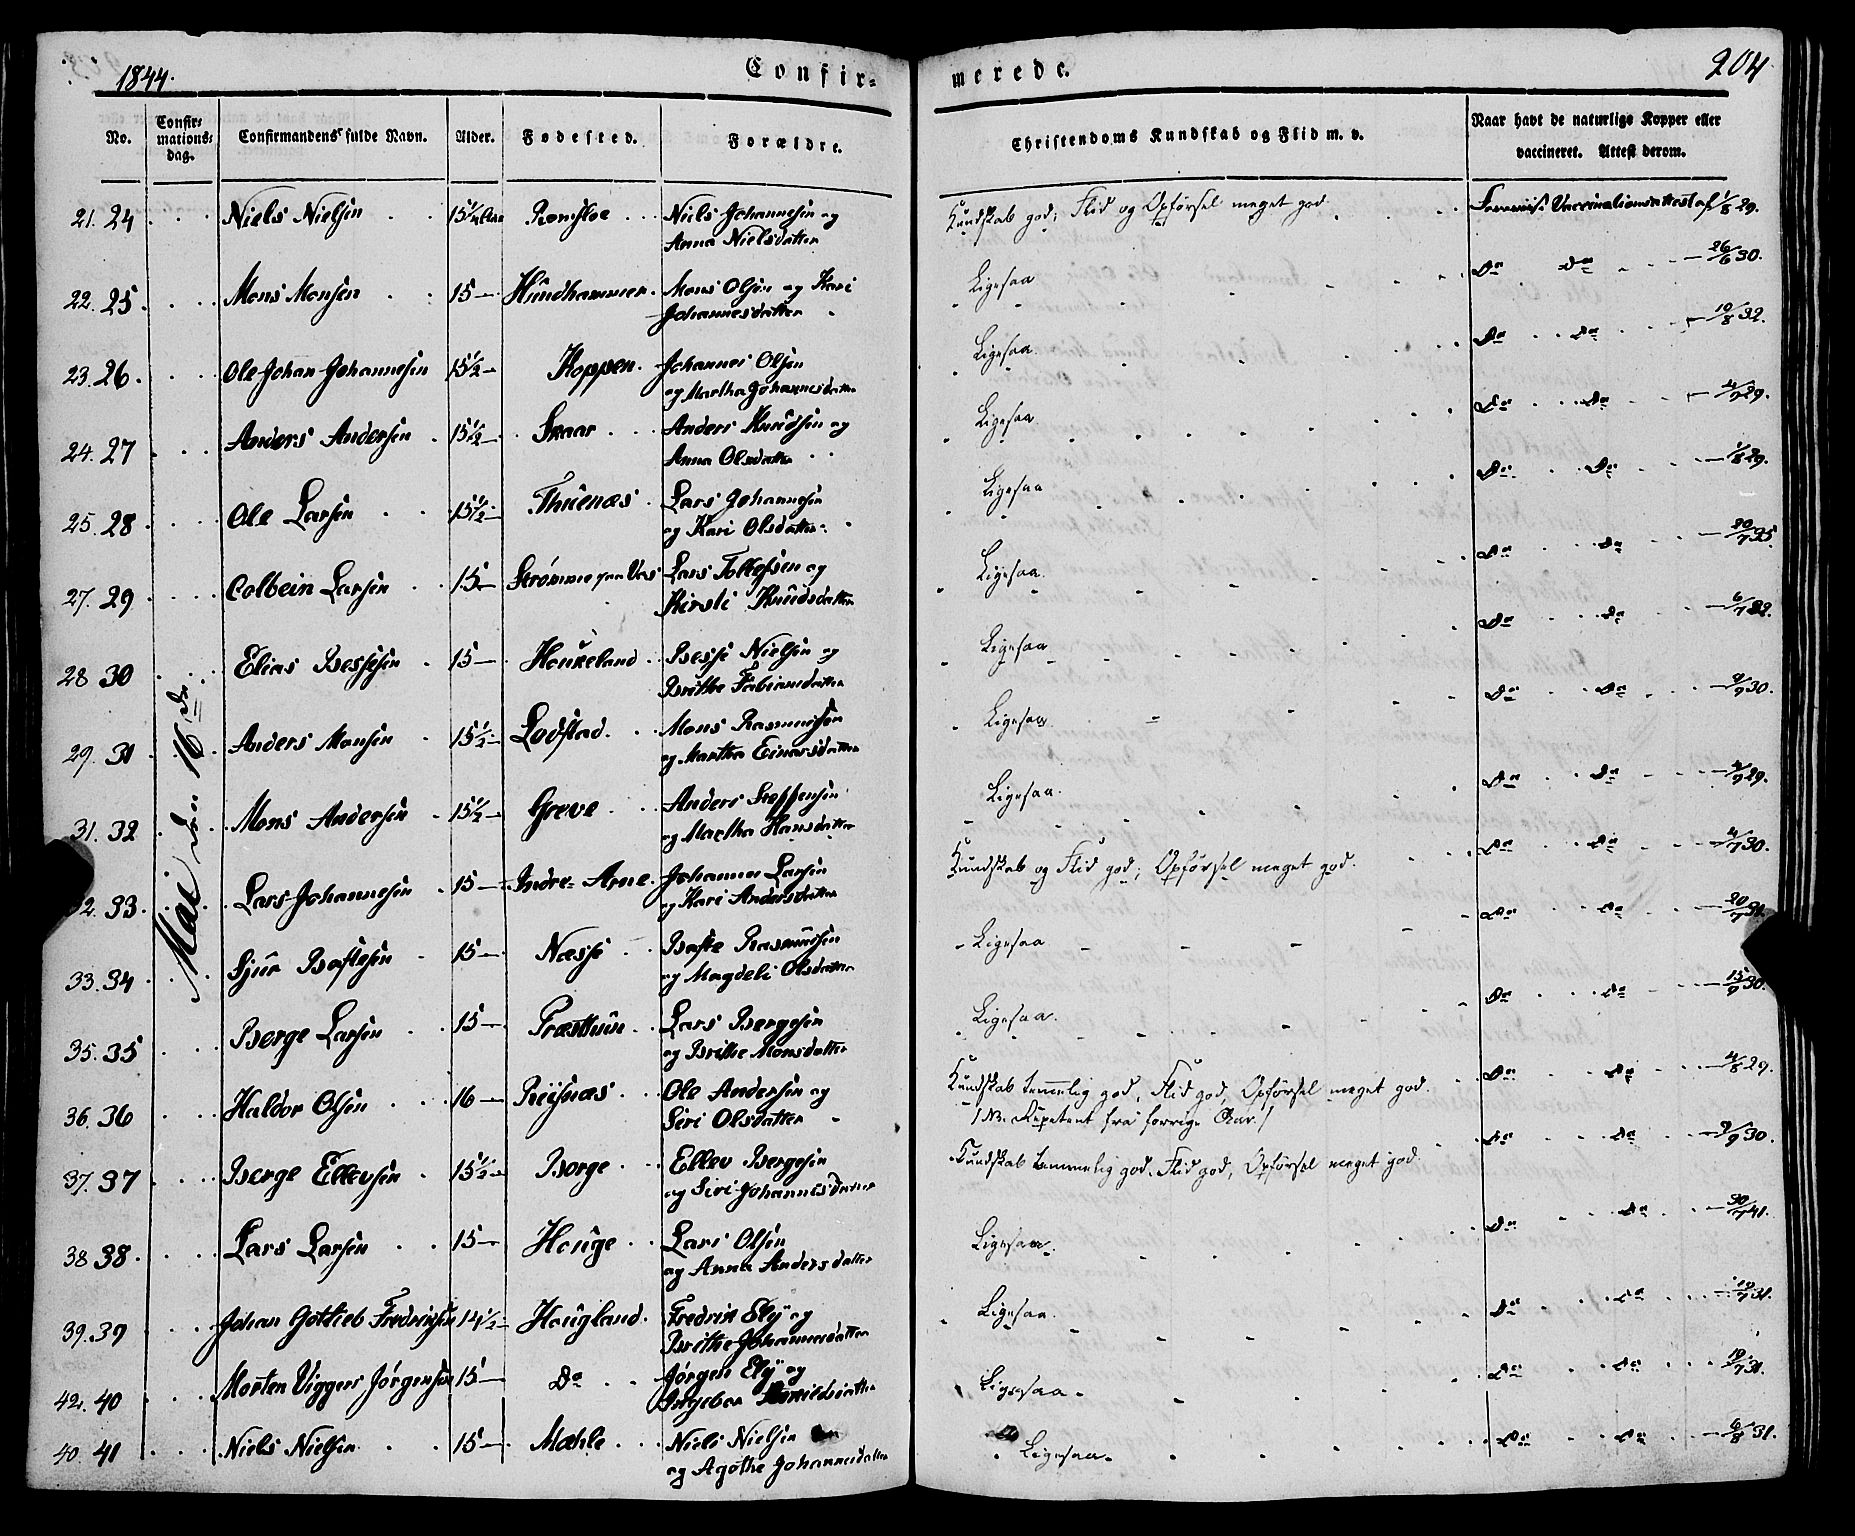 1844.
Confir=
merede.
204
No.
Confir-
mations-
dag.
Confirmandens fulde Navn.
Alder.
Fødested.
Forældre.
Christendoms Kundskab og Flid m. v.
Naar havt de naturlige Kopper eller
vaccineret. Attest derom.
Mai den 16de
21. 24 Niels Nielsen 15 1/2 Romsloe Niels Johannesen og
Anna Nielsdatter
Kundskab god; Flid og Opførsel meget god Vaccinationsattest af 1/8 29.
22. 25. Mons Monsen 15 Hundhammer. Mons Olsen og Kari
Johannesdatter
Ligesaa Do Do 26/6 30.
23. 26. Ole Johan Johannesen 15 1/2 Koppen. Johannes Olsen
og Martha Johannesdatter
Ligesaa. Do Do 10/8 32.
24. 27 Anders Andersen 15 1/2 Skaar Anders Knudsen og
Anna Olsdatter
Ligesaa. Do Do 4/7 29.
25. 28 Ole Larsen 15 1/2 Thuenæs Lars Johannesen
og Kari Olsdatter
Ligesaa Do Do 1/8 29.
27. 29 Colbein Larsen 15 Strømme paa Vos Lars Tollefsen og
Kirsti Knudsdatter
Ligesaa. Do Do 20/7 35.
28 30 Elias Bessesen 15 Houkeland Besse Nielsen og
Brithe Fabiansdatter
Ligesaa Do Do 6/7 32.
29. 31 Anders Monsen 15 1/2 Lodstad. Mons Rasmussen
og Martha Einarsdatter
Ligesaa. Do Do 9/7 30.
31. 32 Mons Andersen 15 1/2 Greve Anders Steffensen
og Martha Hansdatter
Ligesaa. Do Do 4/9 29.
32. 33. Lars Johannesen 15 Indre Arne. Johannes Larsen
og Kari Andersdatter
Kundskab og Flid god; Opførsel meget god. Do Do 4/7 30.
33. 34 Sjur Bastesen 15 Næsse Baste Rasmussen
og Magdeli Olsdatter
Ligesaa Do Do 20/7 31.
35. 35 Børge Larsen 15 Præsthuun Lars Børgesen
og Brithe Monsdatter
Ligesaa. Do Do 15/9 30.
36. 36 Haldor Olsen 16 Riisnæs Ole Andersen og
Siri Olsdatter
Kundskab temmelig god, Flid god, Opførsel meget god. Do Do 4/8 29.
/NB. Repetent fra forrige Aar./
37. 37 Børge Ellevsen 15 1/2 Borge Ellev Børgesen
og Siri Johannesdatter
Kundskab temmelig god. Flid god, Opførsel meget god. Do Do 9/9 30.
38 38 Lars Larsen 15 Houge Lars Olsen
og Anna Andersdatter
Ligesaa. Do Do 30/7 41.
39. 39 Johan Gottlieb Fredriksen 14 1/2 Hougland. Fredrik Ely og
Brithe Johannesdatter
Ligesaa. Do Do 31.
42. 40 Morten Vigger Jørgensen 15 Do Jørgen Ely og
Ingebor
Ligesaa. Do Do 19/7 31.
40. 41 Niels Nielsen. 15 Mæhle Niels Nielsen
og Agothe Johannesdatter
Ligesaa. Do Do 6/8 31.